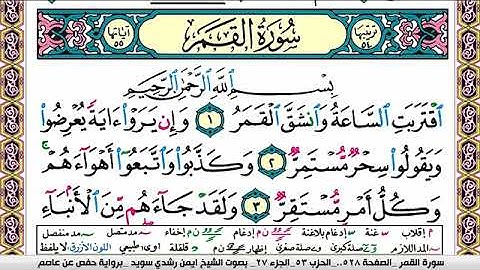 ترتيبها ٥٤
سُورَةُ القَمَرِ
آياتها ٥٥
بِسْمِ ٱللَّهِ ٱلرَّحْمَٰنِ ٱلرَّحِيمِ
ٱقْتَرَبَتِ ٱلسَّاعَةُ وَٱنشَقَّ ٱلْقَمَرُ ١ وَإِن يَرَوْا۟ ءَايَةً يُعْرِضُوا۟
وَيَقُولُوا۟ سِحْرٌ مُّسْتَمِرٌّ ٢ وَكَذَّبُوا۟ وَٱتَّبَعُوٓا۟ أَهْوَآءَهُمْ ۚ
وَكُلُّ أَمْرٍ مُّسْتَقِرٌّ ٣ وَلَقَدْ جَآءَهُم مِّنَ ٱلْأَنۢبَآءِ
م إقلاب غنة إدغام بلاغنة إدغام إخفاء مد متصل مد منفصل
المد اللازم صلة كبرى صلة صغرى إظهار قلقلة مد طبيعي اللون الأزرق لا يلفظ
سورة القمر _الصفحة ٥٢٨_ الحزب ٥٣_الجزء ٢٧_ بصوت الشيخ ايمن رشدي سويد _برواية حفص عن عاصم